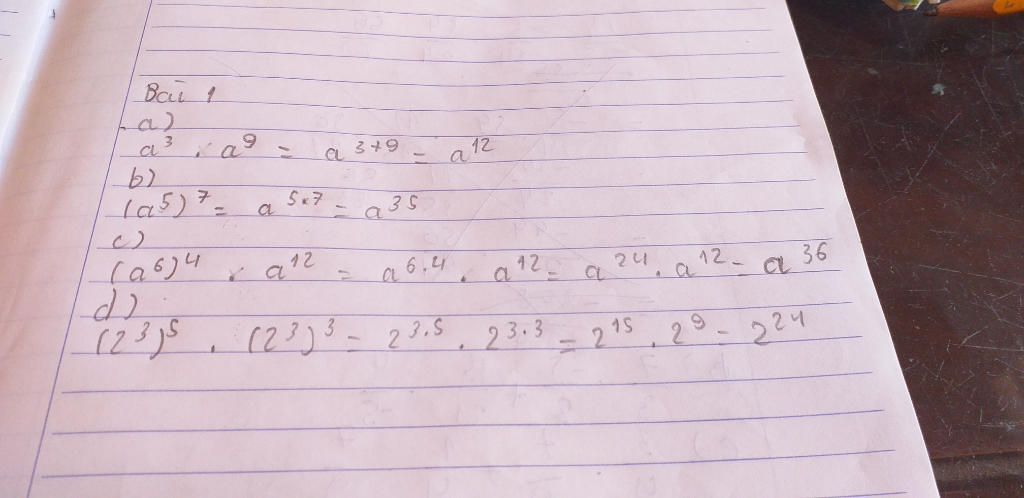 Bài 1
a)
a³ . a⁹ = a³⁺⁹ = a¹²
b)
(a⁵)⁷ = a⁵·⁷ = a³⁵
c)
(a⁶)⁴ . a¹² = a⁶·⁴ . a¹² = a²⁴ . a¹² = a³⁶
d)
(2³)⁵ . (2³)³ = 2³·⁵ . 2³·³ = 2¹⁵ . 2⁹ = 2²⁴